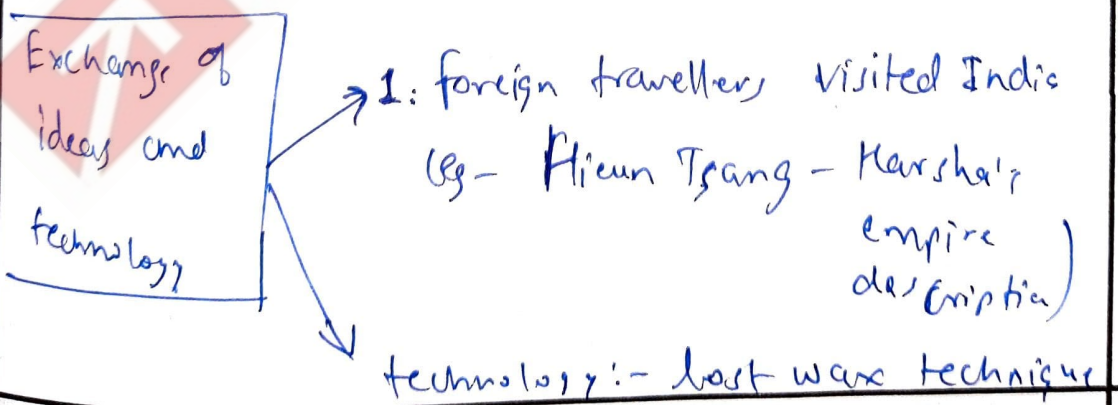 Exchange of
ideas and
technology
1: foreign travellers visited India
(eg- Hieun Tsang - Harsha's
empire
description)
technology:- lost wax technique